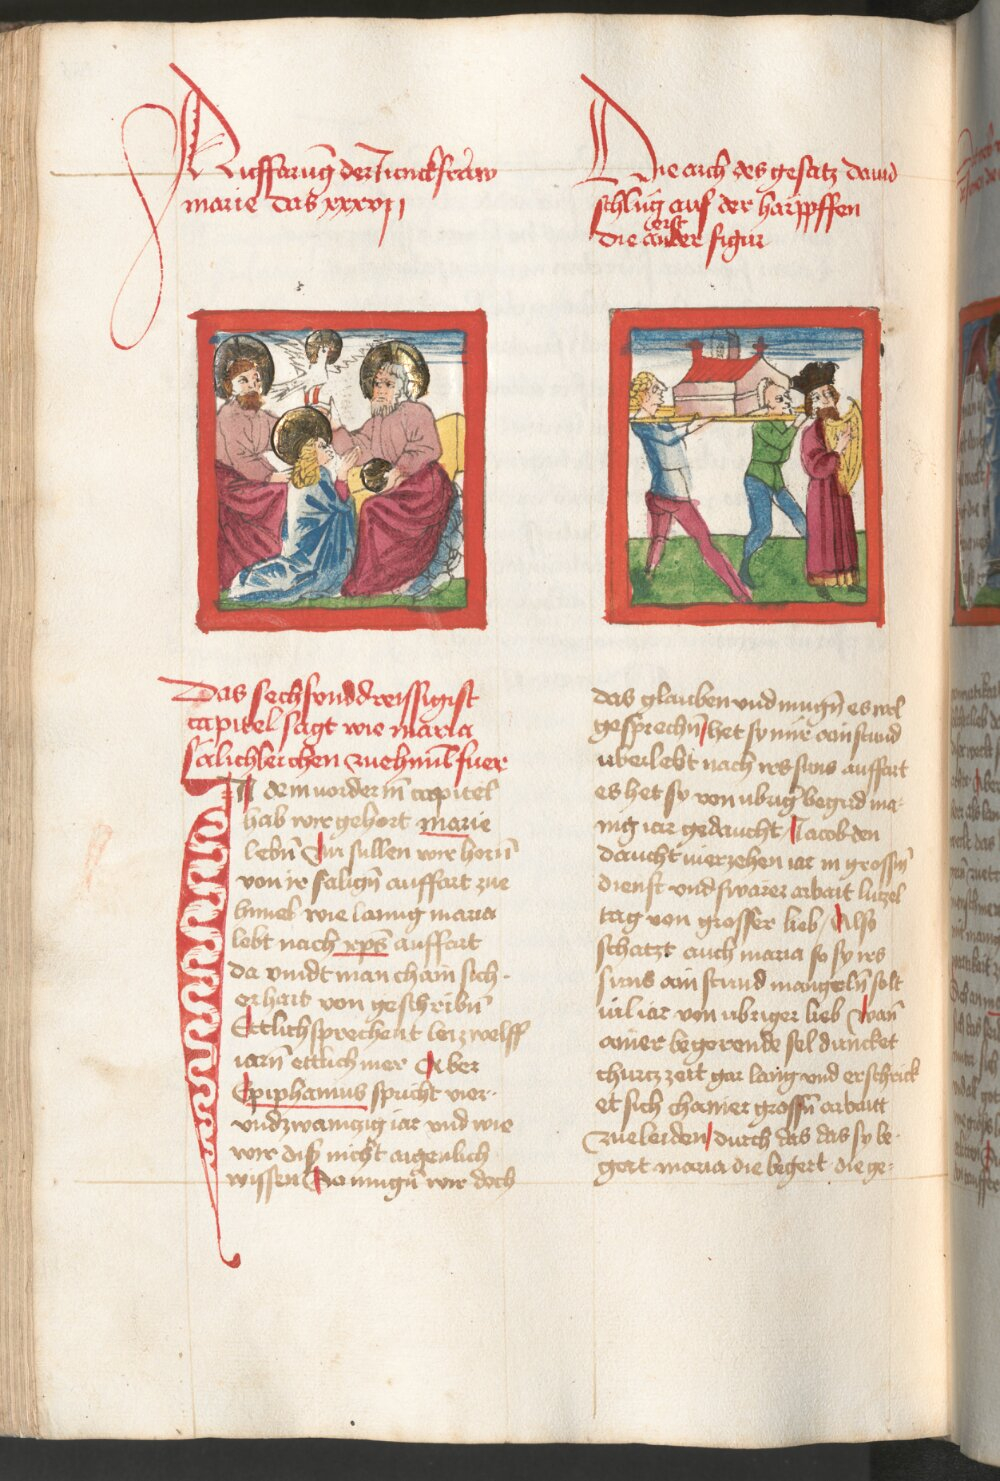 Auffarung der Junckfraw
marie das xxxvij
Die arch des gesatz dauid
schlug auf der harpffen
die ander figur
erst
Das sechsunddreissigist
capitel sagt wie maria
sälichleichen zue himl fuer
In dem vordern capitel
hab wir gehort marie
lebn Nu sullen wir horn
von ir salign auffart zue
himel wie lanng maria
lebt nach xps auffart
da vindt man chain sich-
erhait von geschribn
Ettlich sprechent lx zwelff
iarn ettlich mer Aber
Epiphanius spricht vier-
undzwainzig iar und wie
wir diss nicht aigenlich
wissen So mugn wir doch
das glauben und mugn es wol
gesprechn het sy nur ain stund
uberlebt nach irs suns auffart
es het sy von ubrig begird ma-
nig iar gedaucht Jacob den
daucht vierzehen iar in grossm
dienst und swarer arbait luzel
tag von grosser lieb Also
schatzt auch maria so sy irs
suns ain stund mangeln solt
vil iar von ubriger lieb Wan
ainer begerende sel duncket
churtz zeit gar lang und erschrick
et sich chainer grossn arbait
zue leiden durch das das sy be-
gert maria die begert die ge-